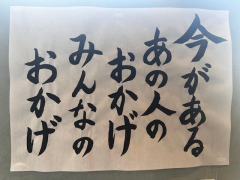 今がある
あの人の
おかげ
みんなの
おかげ